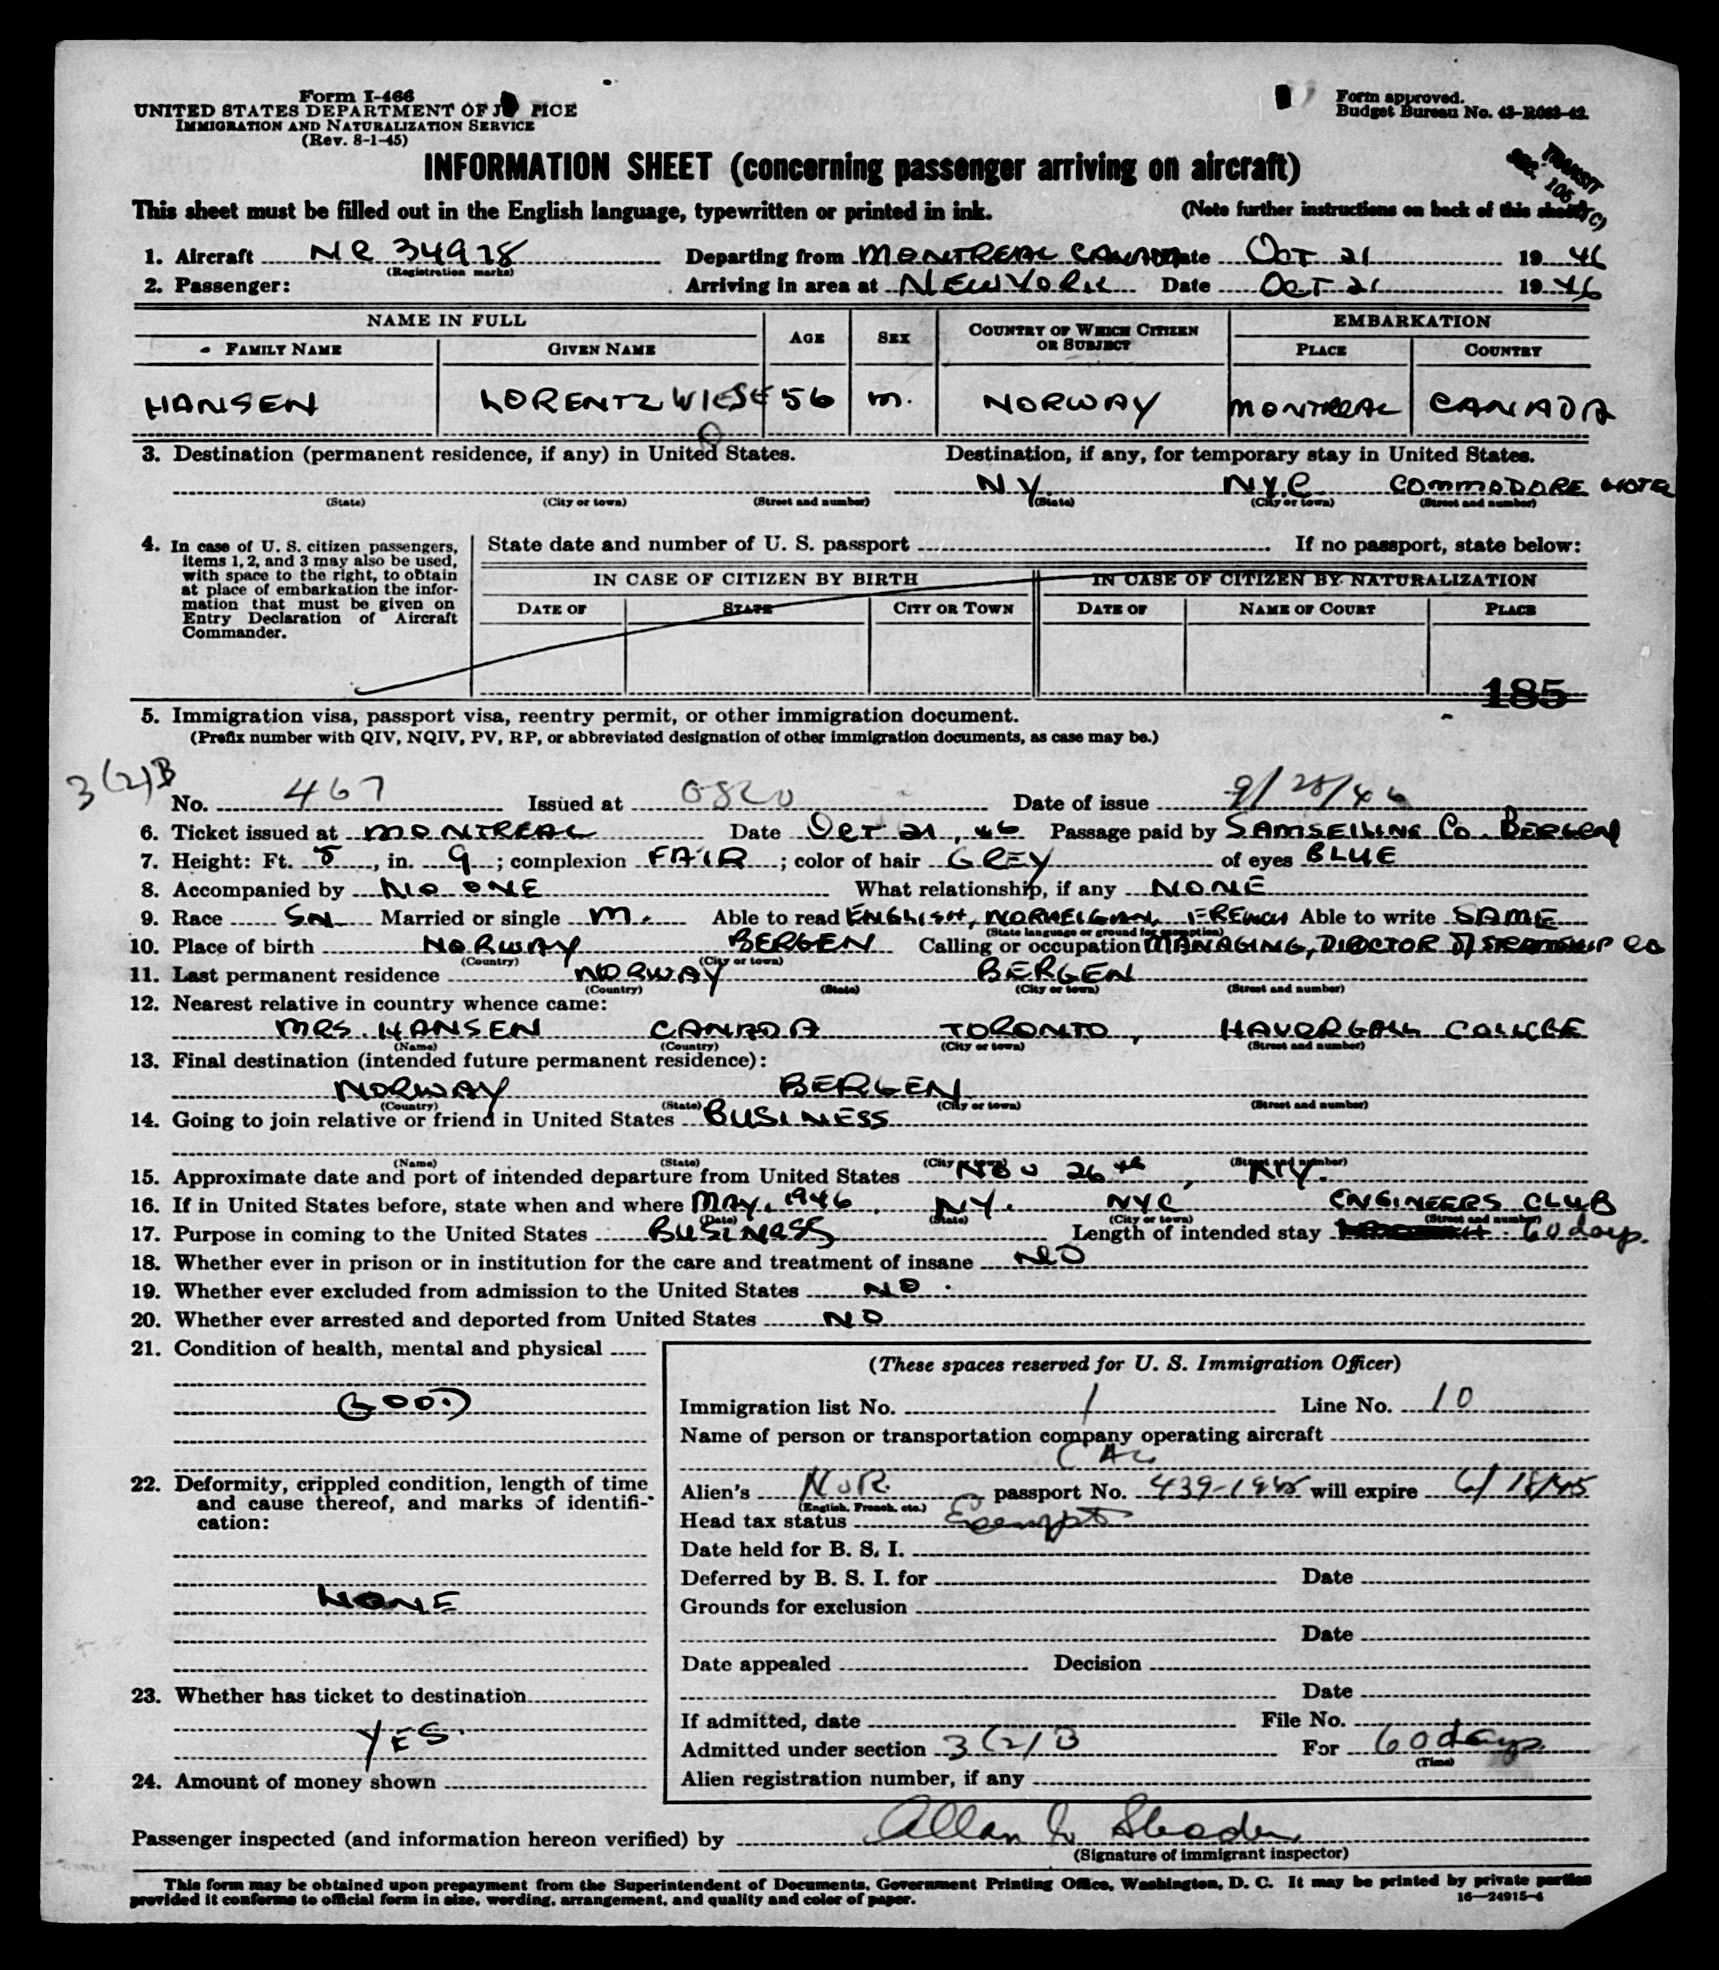 Form I-466
UNITED STATES DEPARTMENT OF
IMMIGRATION AND NATURALIZATION SERVICE
(Rev. 8-1-45)
Form approved.
Budget Bureau No. 43-R083-42.
TRANSIT
INFORMATION SHEET (concerning passenger arriving on aircraft)
This sheet must be filled out in the English language, typewritten or printed in ink. (Note further instructions on back of this sheet)
1. Aircraft NC 34978 Departing from MONTREAL CANADA Date OCT 21 1946
(Registration marks)
2. Passenger: Arriving in area at NEW YORK Date OCT 21 1946
NAME IN FULL AGE SEX COUNTRY OF WHICH CITIZEN OR SUBJECT EMBARKATION
FAMILY NAME GIVEN NAME PLACE COUNTRY
HANSEN LORENTZ WIESE 56 M. NORWAY MONTREAL CANADA
3. Destination (permanent residence, if any) in United States. Destination, if any, for temporary stay in United States.
N Y. N.Y.C COMMODORE HOTEL
(State) (City or town) (Street and number) (State) (City or town) (Street and number)
4. In case of U. S. citizen passengers,
items 1, 2, and 3 may also be used,
with space to the right, to obtain
at place of embarkation the infor-
mation that must be given on
Entry Declaration of Aircraft
Commander.
State date and number of U. S. passport If no passport, state below:
IN CASE OF CITIZEN BY BIRTH IN CASE OF CITIZEN BY NATURALIZATION
DATE OF STATE CITY OR TOWN DATE OF NAME OF COURT PLACE
185
5. Immigration visa, passport visa, reentry permit, or other immigration document.
(Prefix number with QIV, NQIV, PV, RP, or abbreviated designation of other immigration documents, as case may be.)
3(2)B
No. 467 Issued at OSLO Date of issue 9/28/46
6. Ticket issued at MONTREAL Date OCT 21, 46 Passage paid by Co. BERGEN
7. Height: Ft. 5, in. 9; complexion FAIR; color of hair GREY of eyes BLUE
8. Accompanied by NO ONE What relationship, if any NONE
9. Race SN Married or single M. Able to read ENGLISH, NORWEIGAN, FRENCH Able to write SAME
(State language or ground for exemption)
10. Place of birth NORWAY BERGEN Calling or occupation MANAGING, DIRECTOR OF STEAMSHIP CO
(Country) (City or town)
11. Last permanent residence NORWAY BERGEN
(Country) (State) (City or town) (Street and number)
12. Nearest relative in country whence came:
MRS. HANSEN CANADA TORONTO, HAVERGALL COLLEGE
(Name) (Country) (City or town) (Street and number)
13. Final destination (intended future permanent residence):
NORWAY BERGEN
(Country) (State) (City or town) (Street and number)
14. Going to join relative or friend in United States BUSINESS
(Name) (State) (City or town) (Street and number)
15. Approximate date and port of intended departure from United States NOV 26th, N.Y.
16. If in United States before, state when and where MAY. 1946, N.Y. NYC ENGINEERS CLUB
(Date) (State) (City or town) (Street and number)
17. Purpose in coming to the United States BUSINESS Length of intended stay 60 days.
18. Whether ever in prison or in institution for the care and treatment of insane NO
19. Whether ever excluded from admission to the United States NO
20. Whether ever arrested and deported from United States NO
21. Condition of health, mental and physical
GOOD
22. Deformity, crippled condition, length of time
and cause thereof, and marks of identifi-
cation:
NONE
23. Whether has ticket to destination
YES.
24. Amount of money shown
(These spaces reserved for U. S. Immigration Officer)
Immigration list No. 1 Line No. 10
Name of person or transportation company operating aircraft
Alien's NOR. passport No. will expire
(English, French, etc.)
Head tax status Exempt
Date held for B. S. I.
Deferred by B. S. I. for Date
Grounds for exclusion
Date
Date appealed Decision
Date
If admitted, date File No.
Admitted under section 3(2)B For 60 days
(Time)
Alien registration number, if any
Passenger inspected (and information hereon verified) by Allan
(Signature of immigrant inspector)
This form may be obtained upon prepayment from the Superintendent of Documents, Government Printing Office, Washington, D. C. It may be printed by private parties
provided it conforms to official form in size, wording, arrangement, and quality and color of paper. 16—24915-4